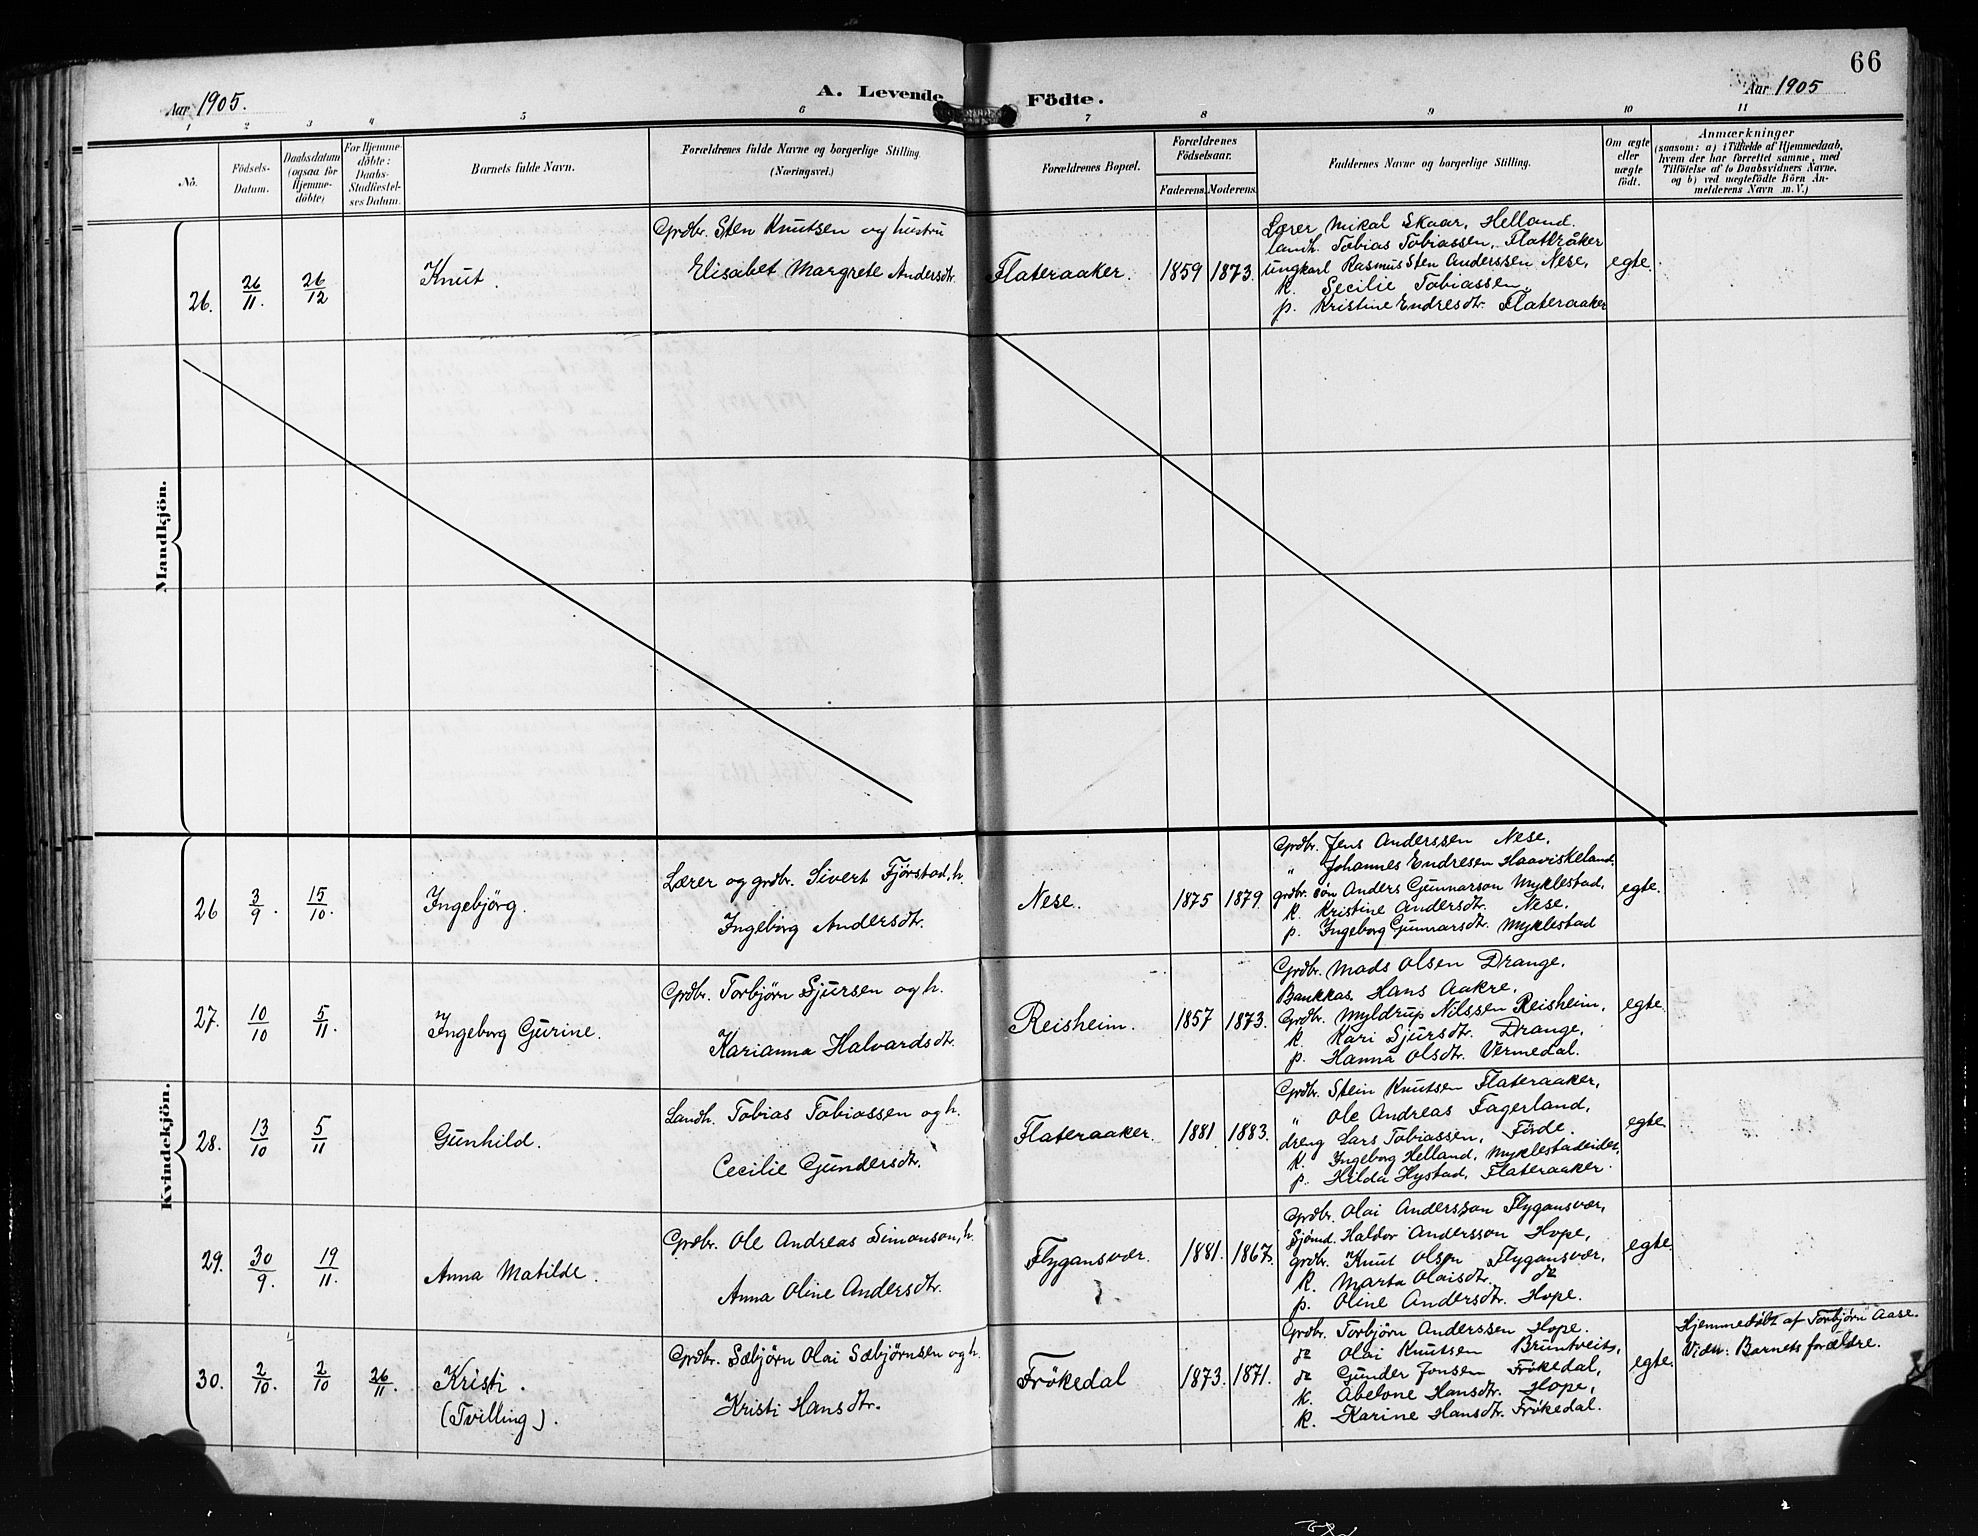 66
Aar 1905.
A. Levende
Födte.
Aar 1905
1 2 3 4 5 6 7 8 9 10 11
No.
Födsels-
Datum.
Daabsdatum
(ogsaa for
Hjemme-
döbte)
For Hjemme-
döbte:
Daabs-
Stadfæstel-
ses Datum.
Barnets fulde Navn.
Forældrenes fulde Navne og borgerlige Stilling.
(Næringsvei.)
Forældrenes Bopæl.
Forældrenes
Födselsaar.
Faderens. Moderens.
Faddernes Navne og borgerlige Stilling.
Om ægte
eller
uægte
födt.
Anmærkninger
(saasom: a) i Tilfælde af Hjemmedaab,
hvem der har forrettet samme, med
Tilföielse af to Daabsvidners Navne,
og b) ved uægtefödte Börn An-
melderens Navn m. V.)
Mandkjön.
26. 26/11. 26/12 Knut.
Grdbr. Sten Knutsen og hustru
Elisabet Margrete Andersdtr.
Flateraaker. 1859 1873.
Lærer Mikal Skaar, Helland.
landh. Tobias Tobiassen, Flatråker
ungkarl Rasmus Sten Anderssen Nese,
K. Secilie Tobiassen,
p. Kristine Endresdtr. Flateraaker
egte.
Kvindekjön.
26 3/9. 15/10. Ingebjörg.
Lærer og grdbr. Sivert Fjörstad, h.
Ingeborg Andersdtr.
Nese. 1875 1879.
Grdbr. Jens Anderssen Nese,
„ Johannes Endresen Haaviskeland.
grdbr. sön Anders Gunnarson Myklestad,
K. Kristine Andersdtr. Nese.
p. Ingeborg Gunnarsdtr. Myklestad
egte.
27. 10/10 5/11. Ingeborg Gurine.
Grdbr. Torbjörn Sjursen og h.
Karianna Halvardsdtr.
Reisheim. 1857 1873.
Grdbr. Mads Olsen Drange,
Bankkas. Hans Aakre,
Grdbr. Myldrup Nilssen Reisheim,
K. Kari Sjursdtr. Drange,
p. Hanna Olsdtr. Vermedal.
egte.
28. 13/10 5/11 Gunhild.
Landh. Tobias Tobiassen og h.
Cecilie Gundersdtr.
Flateraaker. 1881 1883.
Grdbr. Stein Knutsen Flateraaker,
„ Ole Andreas Fagerland,
dreng Lars Tobiassen, Förde.
K. Ingeborg Helland, Myklestadeidet,
p. Hilda Hystad, Flateraaker.
egte.
29. 30/9. 19/11. Anna Matilde.
Grdbr. Ole Andreas Simonson, h.
Anna Oline Andersdtr.
Flygansvær. 1881. 1867.
Grdbr. Olai Andersson Flygansvær,
Sjömd. Haldor Andersson Hope,
grdbr. Knut Olsen Flygansvær,
K. Marta Olaisdtr. do
p. Oline Andersdtr. Hope.
egte.
30. 2/10. 2/10 26/11. Kristi.
(Tvilling).
Grdbr. Sæbjörn Olai Sæbjörnsen og h.
Kristi Hansdtr.
Frökedal 1873. 1871.
Grdbr. Torbjörn Anderssen Hope.
do Olai Knutsen Bruntveit,
do Gunder Jonsen Frökedal,
K. Abelone Hansdtr. Hope,
K. Karine Hansdtr. Frökedal.
egte.
Hjemmedöbt af Torbjörn Aase.
Vidn: Barnets forældre.